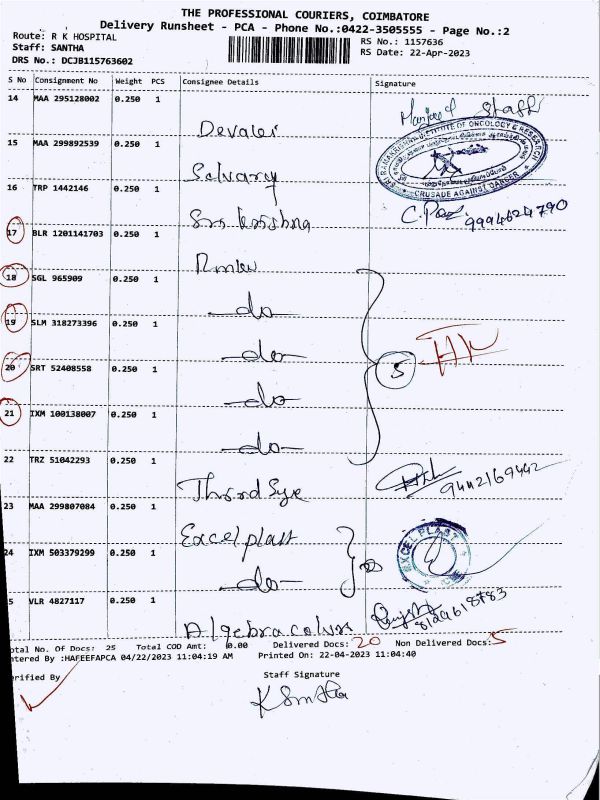 THE PROFESSIONAL COURIERS, COIMBATORE
Delivery Runsheet - PCA - Phone No.:0422-3505555 - Page No.:2
Route: R K HOSPITAL
Staff: SANTHA
DRS No.: DCJB115763602
RS No.: 1157636
RS Date: 22-Apr-2023
S No Consignment No Weight PCS Consignee Details Signature
14 MAA 295128002 0.250 1
15 MAA 299892539 0.250 1
INSTITUTE OF ONCOLOGY & RESEARCH
CRUSADE AGAINST CANCER
16 TRP 1442146 0.250 1
Sri Krishna
9994624790
17 BLR 1201141703 0.250 1
18 SGL 965909 0.250 1
do
19 SLM 318273396 0.250 1
do
20 SRT 52408558 0.250 1
do
5
21 IXM 100138007 0.250 1
do
22 TRZ 51042293 0.250 1
Third Eye
9442169442
23 MAA 299807084 0.250 1
Excel plast
EXCEL PLAST
24 IXM 503379299 0.250 1
do
5 VLR 4827117 0.250 1
Algebra
8129618783
otal No. Of Docs: 25 Total COD Amt: 0.00 Delivered Docs: 20 Non Delivered Docs: 5
ntered By :HAFEEFAPCA 04/22/2023 11:04:19 AM Printed On: 22-04-2023 11:04:40
erified By Staff Signature